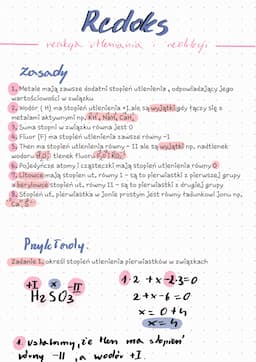 Redoks
reakcja utleniania i redukcji
Zasady
1. Metale mają zawsze dodatni stopień utlenienia, odpowiadający jego
wartościowości w związku
2. Wodór (H) ma stopień utlenienia +I, ale są wyjątki gdy łączy się z
metalami aktywnymi np. KH, NaH, CaH₂
3. Suma stopni w związku równa jest 0
4. Fluor (F) ma stopień utlenienia zawsze równy -1
5. Tlen ma stopień utlenienia równy - II ale są wyjątki np. nadtlenek
wodoru H₂O₂ tlenek fluoru F₂O i KO₂
6. Pojedyńcze atomy i cząsteczki mają stopień utlenienia równy 0
7. Litowce mają stopień utl. równy 1 - są to pierwiastki z pierwszej grupy
a berylowce stopień utl. równy II - są to pierwiastki z drugiej grupy
8. Stopień utl. pierwiastka w jonie prostym jest równy ładunkowi jonu np.
Przykłady:
Zadanie 1. określ stopień utlenienia pierwiastków w związkach
+I x -II
H₂SO₃
1 2 + x - 2·3 = 0
2 + x - 6 = 0
x = 0 + 4
x = 4
1. ustalamy, że tlen ma stopień
równy -II, a wodór +I.